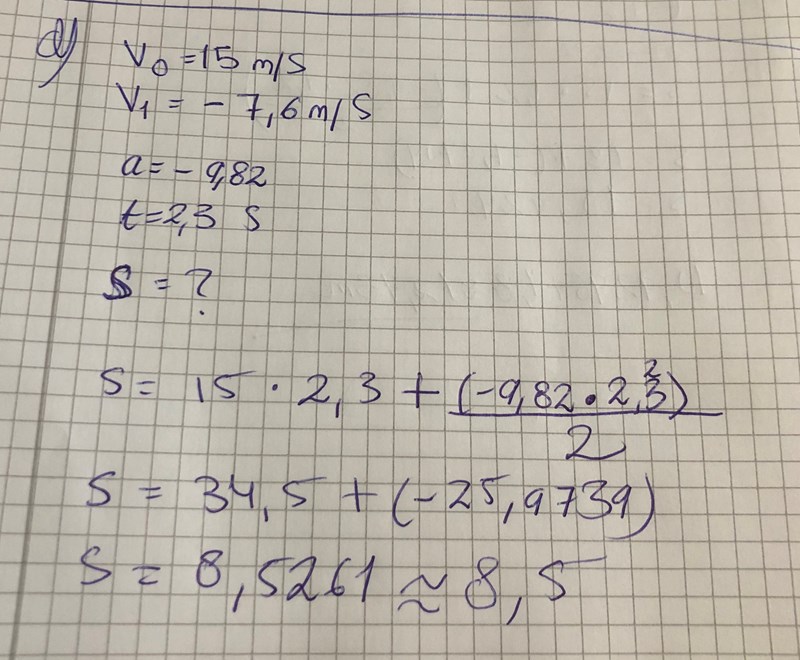 d)
V₀ = 15 m/s
V₁ = - 7,6 m/s
a = - 9,82
t = 2,3 s
S = ?
S = 15 · 2,3 + (-9,82 · 2,3²)/2
S = 34,5 + (-25,9739)
S = 8,5261 ≈ 8,5